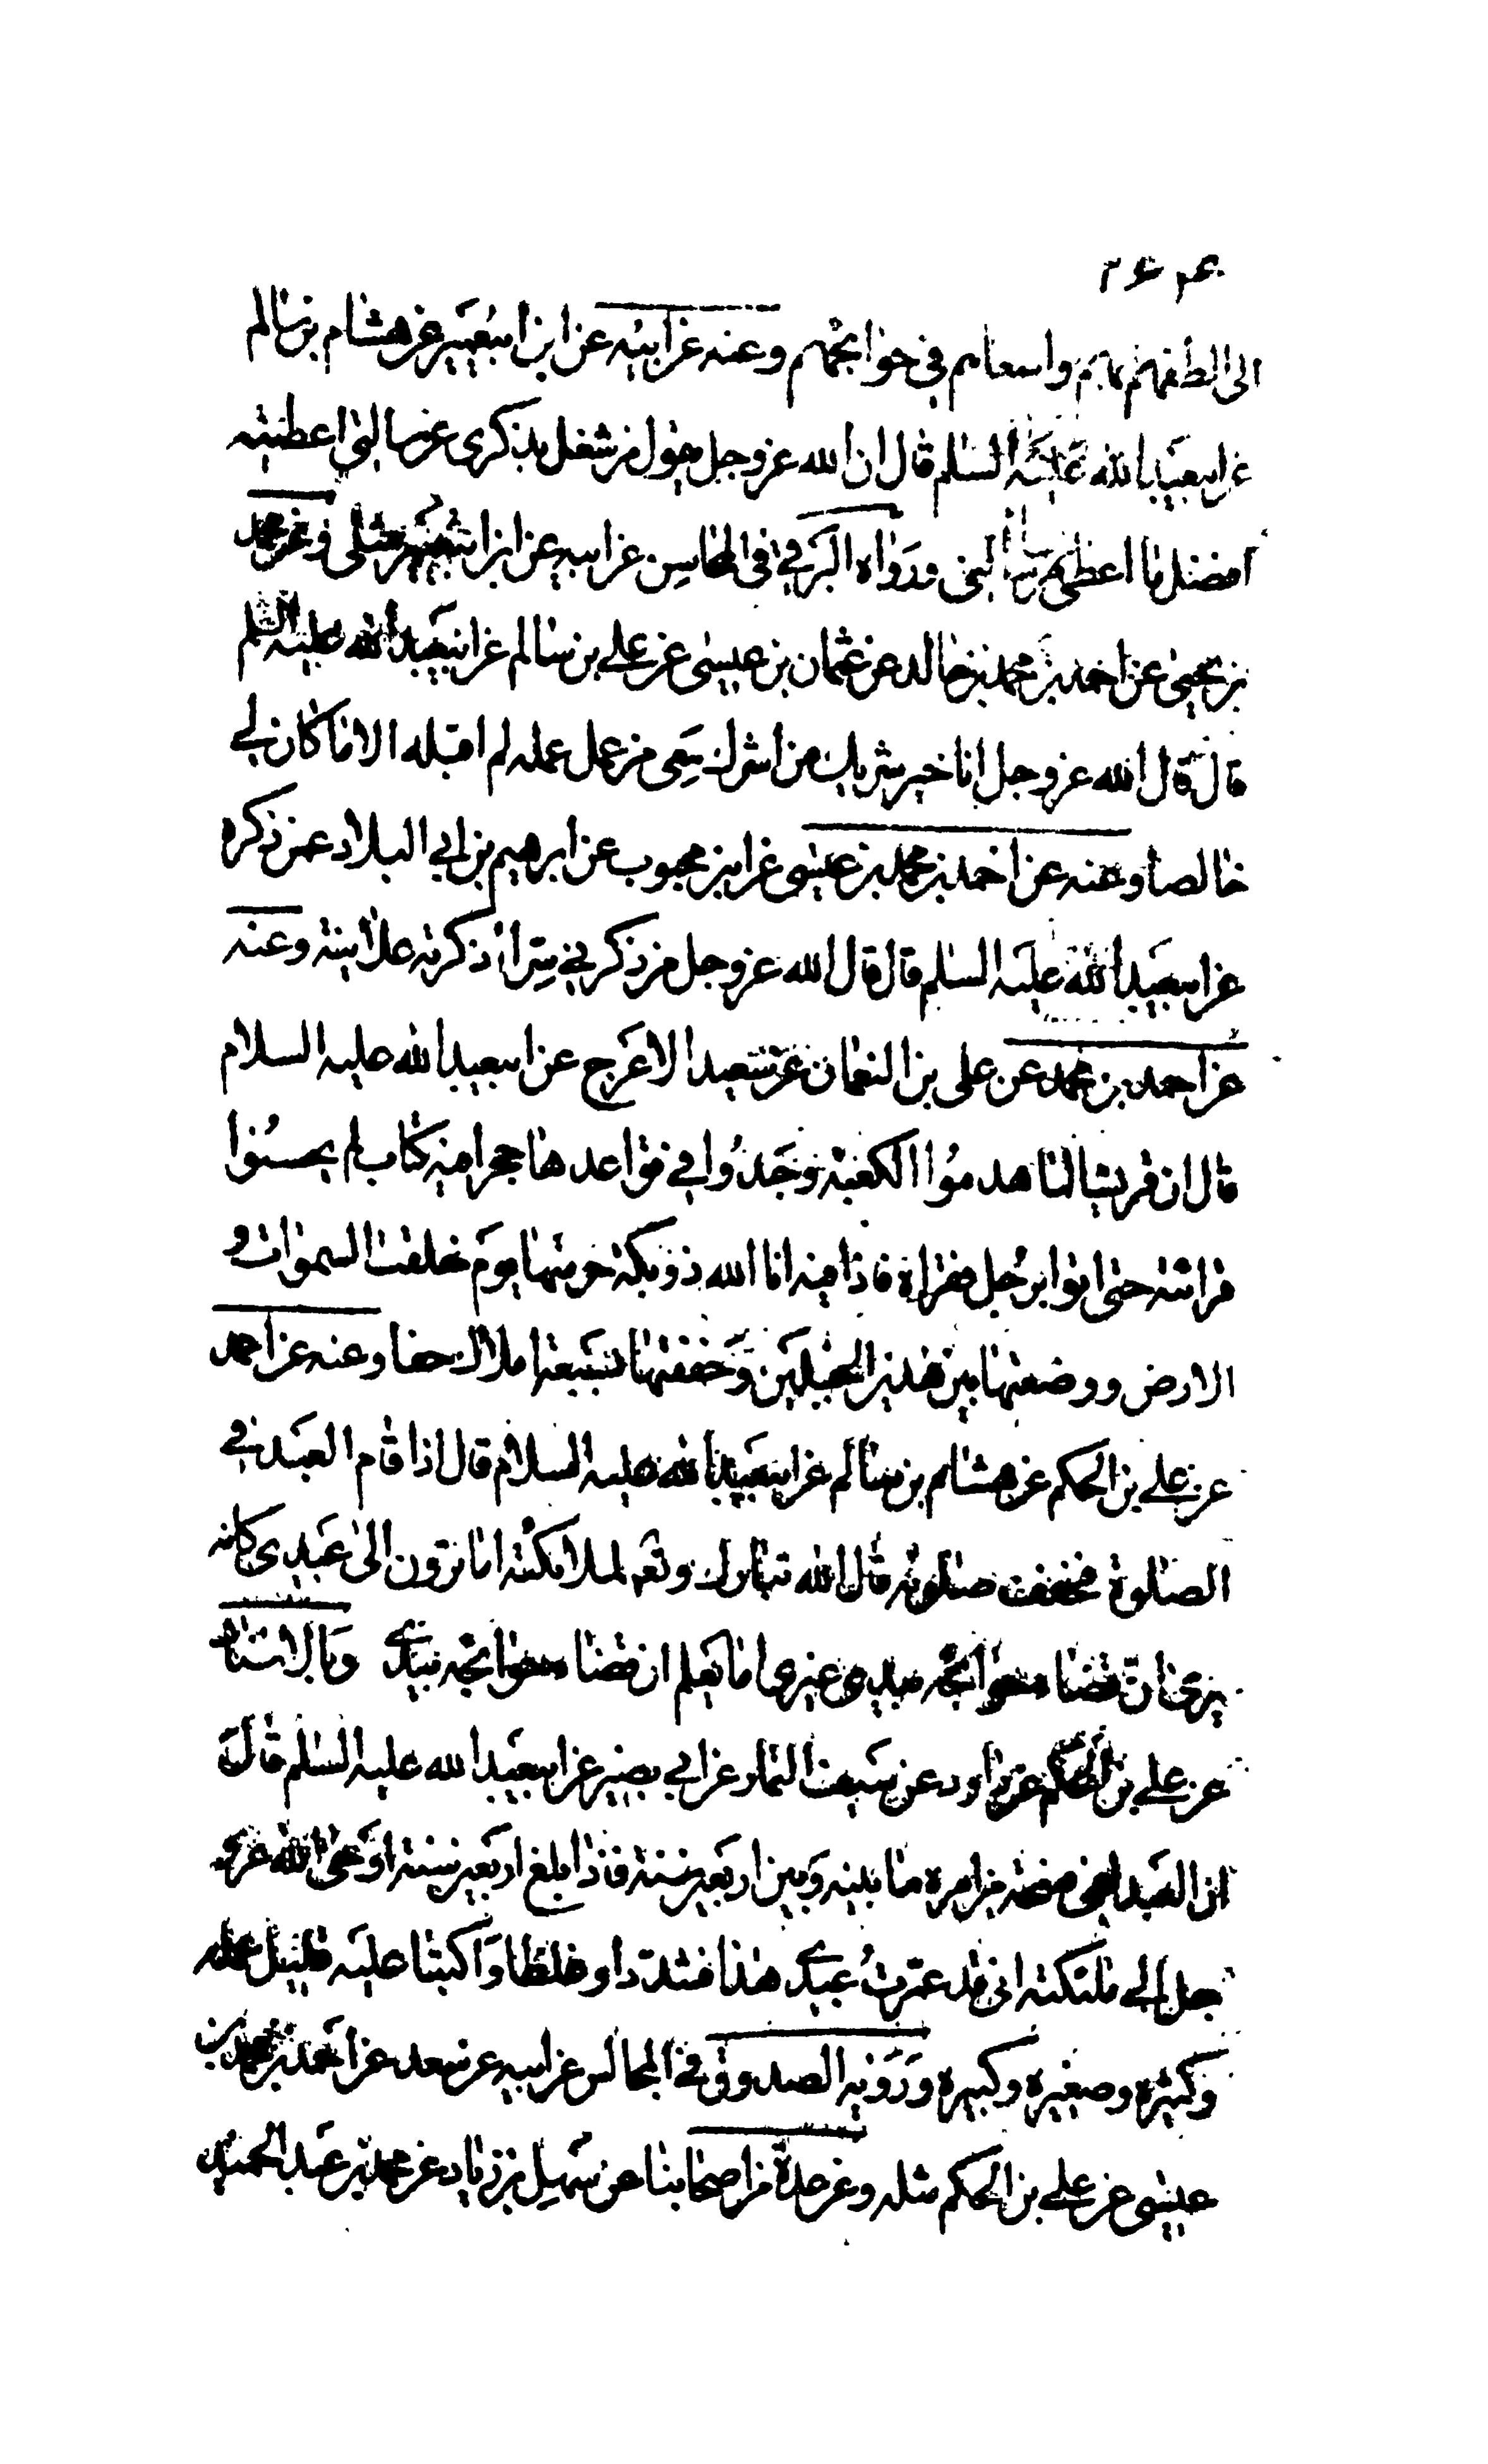 الى الطفهم بهم واسعاهم في حوائجهم وعنه عن ابيه عن ابن ابيعمير عن هشام بن سالم
عن ابيعبد الله عليه السلم قال ان الله عز وجل يقول من شغل بذكرى عن مسالتى اعطيته
افضل ما اعطى من سالنى ورواه البرقي فى المحاسن عن ابيه عن ابن ابيعمير مثله وعن محمد
بن يحيى عن احمد بن محمد بن خالد عن عثمان بن عيسى عن على بن سالم عن ابيعبد الله عليه السلم
قال قال الله عز وجل انا خير شريك من اشرك معى من عمل عمله لم اقبله الا ما كان لى
خالصا وعنه عن احمد بن محمد بن عيسى عن ابن محبوب عن ابرهيم بن ابى البلاد عمن ذكره
عن ابيعبد الله عليه السلم قال قال الله عز وجل من ذكرنى سرا ذكرته علانية وعنه
عن احمد بن محمد عن على بن النعمان عن سعيد الاعرج عن ابيعبد الله عليه السلام
قال ان قريشا لما هدموا الكعبة وجدوا في قواعدها حجرا فيه كتاب لم يحسنوا
قرائته حتى اتوا برجل فقراه فاذا فيه انا الله ذو بكة حرمتها يوم خلقت السموات و
الارض ووضعتها بين هذين الجبلين وحففتها بسبعة املاك حفا وعنه عن احمد
عن على بن الحكم عن هشام بن سالم عن ابيعبد الله عليه السلام قال اذا قام العبد في
الصلوة فخفف صلوته قال الله تبارك وتعم لملائكته اما ترون الى عبدى كانه
يرى ان قضاء حوائجه بيد غيرى اما يعلم ان قضاء حوائجه بيدى وبالاسناد
عن على بن الحكم عن داود عن سيف التمار عن ابى بصير عن ابيعبد الله عليه السلم قال
ان العبد لفى فسحة من امره ما بينه وبين اربعين سنة فاذا بلغ اربعين سنة اوحى الله عز و
جل الى ملئكته انى قد عمرت عبدى هذا فشددا وغلظا واكتبا عليه قليل عمله
وكثيره وصغيره وكبيره ورويه الصدوق في المجالس عن ابيه عن سعد عن احمد بن محمد بن
عيسى عن على بن الحكم مثله وعن عدة من اصحابنا عن سهل بن زياد عن محمد بن عبد الحميد